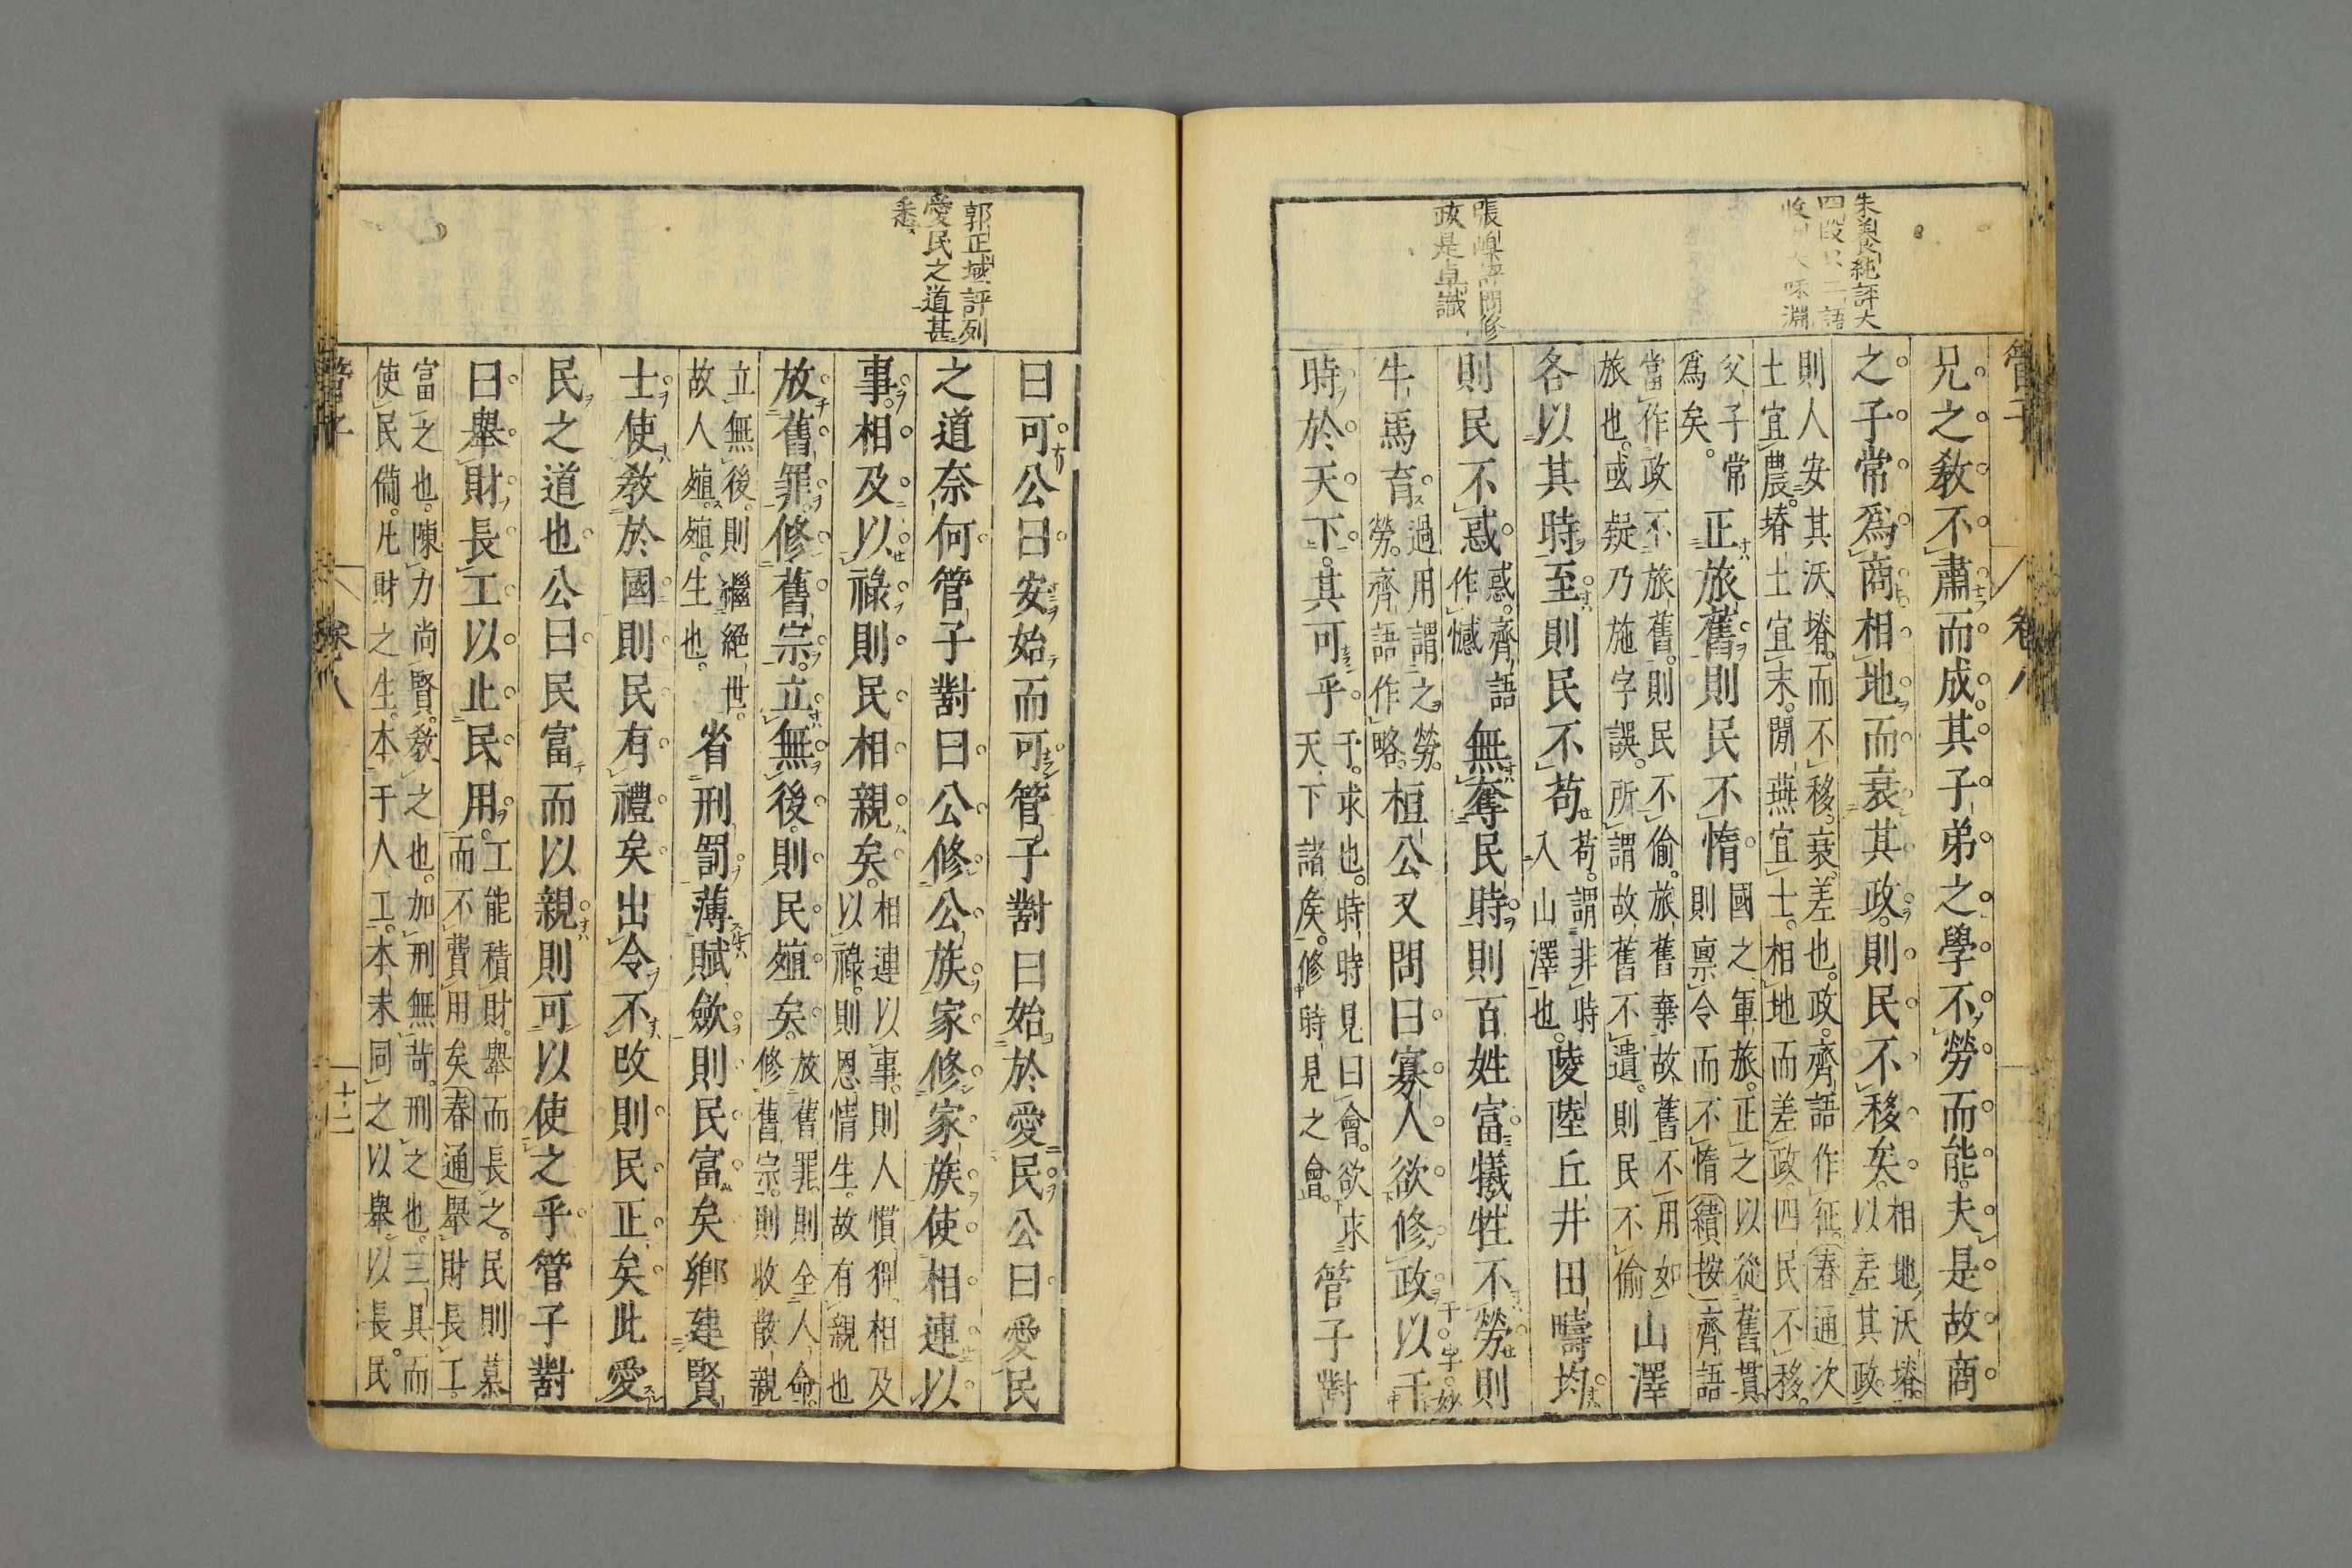 管子
卷八
朱養純評大
四段
語
淵
張嵲評問修
政是卓識
兄之教不肅而成其子弟之學不勞而能夫是故商
之子常爲商相地而衰其政則民不移矣相地沃塉
以差其政
則人安其沃塉而不移衰差也政齊語作征春通次
土宜農塉土宜末閒燕宜士相地而差政四民不移
父子常
爲矣
正旅舊則民不惰
國之軍旅正之以從舊貫
則禀令而不惰績按齊語
當作政不旅舊則民不偷旅舊棄故舊不用如
旅也或疑乃施字誤所謂故舊不遺則民不偷
山澤
各以其時至則民不苟
苟謂非時
入山澤也
陵陸丘井田疇均
則民不惑
惑齊語
作憾
無奪民時則百姓富犧牲不勞則
牛馬育
過用謂之勞
勞齊語作略
桓公又問曰寡人欲修政以干
時於天下其可乎
干求也時時見曰會欲求
天下諸矦修時見之會
管子對
郭正域評列
愛民之道甚
悉
曰可公曰安始而可管子對曰始於愛民公曰愛民
之道奈何管子對曰公修公族家修家族使相連以
事相及以祿則民相親矣
相連以事則人慣狎相及
以祿則恩情生故有親也
放舊罪修舊宗立無後則民殖矣
放舊罪則全人命
修舊宗則收散親
立無後則繼絕世
故人殖殖生也
省刑罰薄賦斂則民富矣鄉建賢
士使教於國則民有禮矣出令不改則民正矣此愛
民之道也公曰民富而以親則可以使之乎管子對
曰舉財長工以止民用
工能積財舉而長之民則慕
而不費用矣春通舉財長工
富之也陳力尚賢教之也加刑無苛刑之也三具而
使民備凡財之生本于人工本末同之以舉以長民
管子
卷八
十二